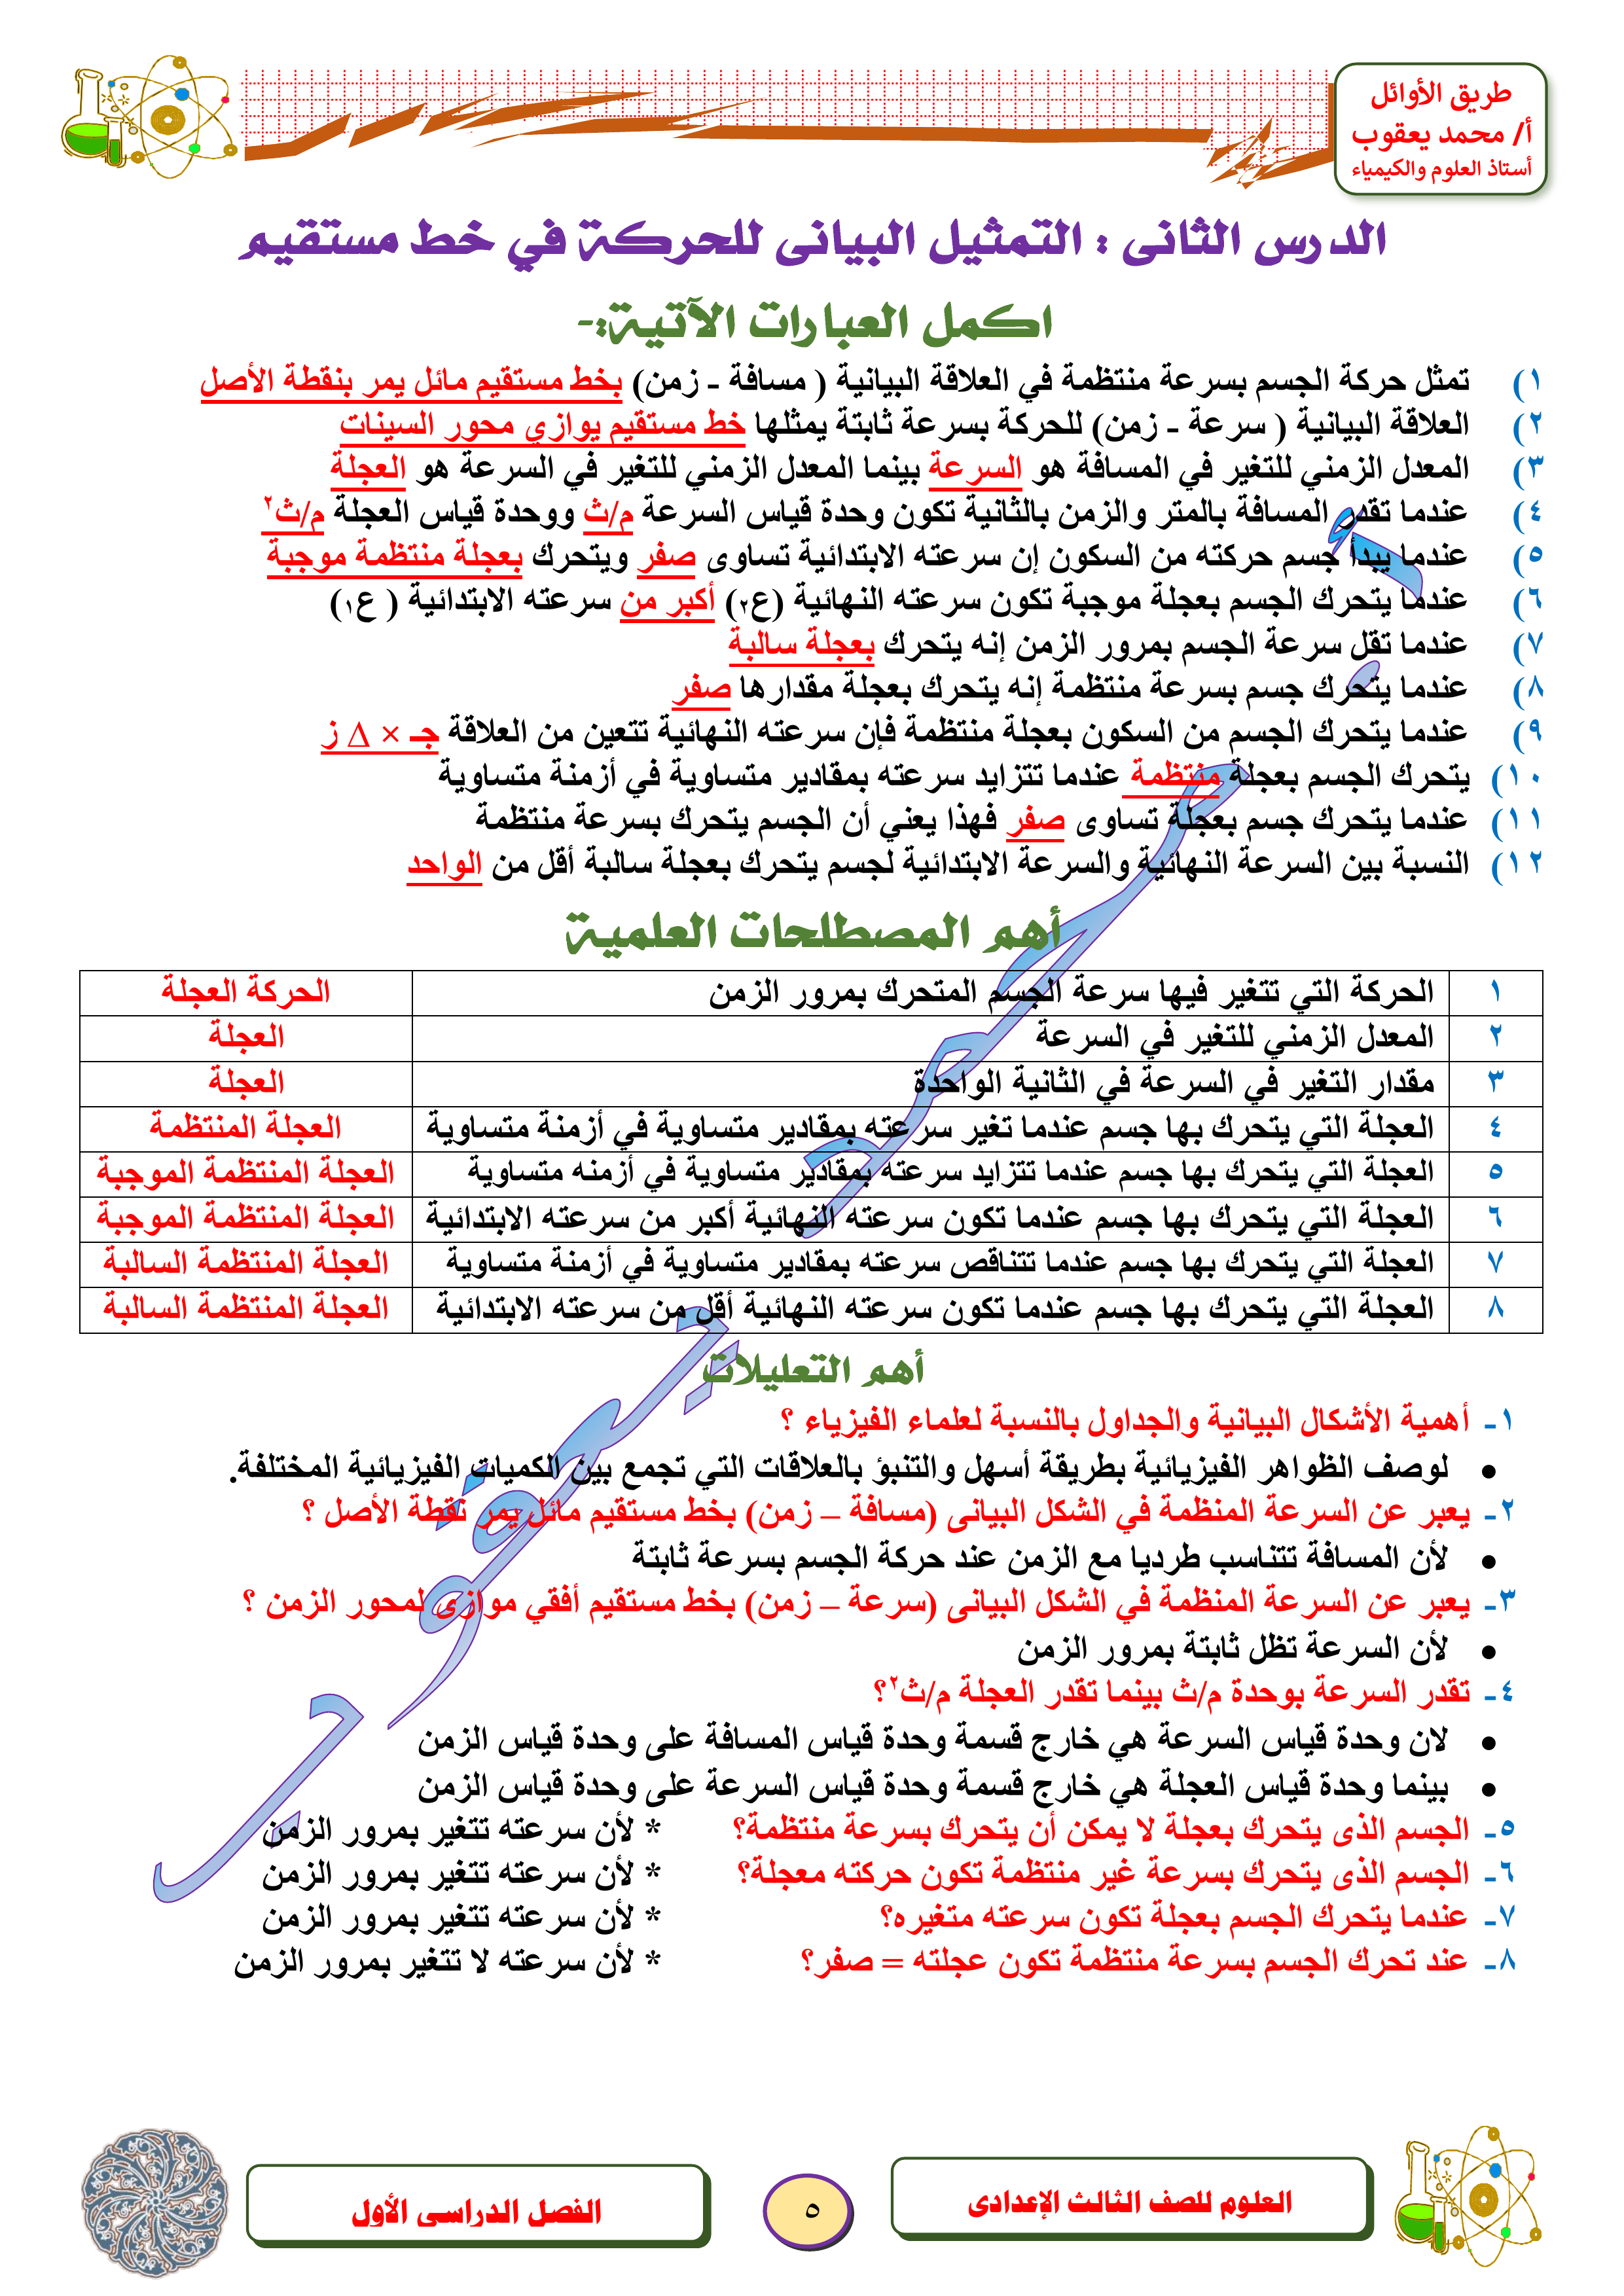 طريق الأوائل
أ/ محمد يعقوب
أستاذ العلوم والكيمياء
الدرس الثانى : التمثيل البيانى للحركة في خط مستقيم
اكمل العبارات الآتية:-
١) تمثل حركة الجسم بسرعة منتظمة في العلاقة البيانية ( مسافة - زمن) بخط مستقيم مائل يمر بنقطة الأصل
٢) العلاقة البيانية ( سرعة - زمن) للحركة بسرعة ثابتة يمثلها خط مستقيم يوازي محور السينات
٣) المعدل الزمني للتغير في المسافة هو السرعة بينما المعدل الزمني للتغير في السرعة هو العجلة
٤) عندما تقدر المسافة بالمتر والزمن بالثانية تكون وحدة قياس السرعة م/ث ووحدة قياس العجلة م/ث٢
٥) عندما يبدأ جسم حركته من السكون إن سرعته الابتدائية تساوى صفر ويتحرك بعجلة منتظمة موجبة
٦) عندما يتحرك الجسم بعجلة موجبة تكون سرعته النهائية (ع٢) أكبر من سرعته الابتدائية ( ع١)
٧) عندما تقل سرعة الجسم بمرور الزمن إنه يتحرك بعجلة سالبة
٨) عندما يتحرك جسم بسرعة منتظمة إنه يتحرك بعجلة مقدارها صفر
٩) عندما يتحرك الجسم من السكون بعجلة منتظمة فإن سرعته النهائية تتعين من العلاقة جـ × Δ ز
١٠) يتحرك الجسم بعجلة منتظمة عندما تتزايد سرعته بمقادير متساوية في أزمنة متساوية
١١) عندما يتحرك جسم بعجلة تساوى صفر فهذا يعني أن الجسم يتحرك بسرعة منتظمة
١٢) النسبة بين السرعة النهائية والسرعة الابتدائية لجسم يتحرك بعجلة سالبة أقل من الواحد
أهم المصطلحات العلمية
١ الحركة التي تتغير فيها سرعة الجسم المتحرك بمرور الزمن الحركة العجلة
٢ المعدل الزمني للتغير في السرعة العجلة
٣ مقدار التغير في السرعة في الثانية الواحدة العجلة
٤ العجلة التي يتحرك بها جسم عندما تغير سرعته بمقادير متساوية في أزمنة متساوية العجلة المنتظمة
٥ العجلة التي يتحرك بها جسم عندما تتزايد سرعته بمقادير متساوية في أزمنه متساوية العجلة المنتظمة الموجبة
٦ العجلة التي يتحرك بها جسم عندما تكون سرعته النهائية أكبر من سرعته الابتدائية العجلة المنتظمة الموجبة
٧ العجلة التي يتحرك بها جسم عندما تتناقص سرعته بمقادير متساوية في أزمنة متساوية العجلة المنتظمة السالبة
٨ العجلة التي يتحرك بها جسم عندما تكون سرعته النهائية أقل من سرعته الابتدائية العجلة المنتظمة السالبة
أهم التعليلات
١- أهمية الأشكال البيانية والجداول بالنسبة لعلماء الفيزياء ؟
• لوصف الظواهر الفيزيائية بطريقة أسهل والتنبؤ بالعلاقات التي تجمع بين الكميات الفيزيائية المختلفة.
٢- يعبر عن السرعة المنظمة في الشكل البيانى (مسافة – زمن) بخط مستقيم مائل يمر نقطة الأصل ؟
• لأن المسافة تتناسب طرديا مع الزمن عند حركة الجسم بسرعة ثابتة
٣- يعبر عن السرعة المنظمة في الشكل البيانى (سرعة – زمن) بخط مستقيم أفقي موازى لمحور الزمن ؟
• لأن السرعة تظل ثابتة بمرور الزمن
٤- تقدر السرعة بوحدة م/ث بينما تقدر العجلة م/ث٢؟
• لان وحدة قياس السرعة هي خارج قسمة وحدة قياس المسافة على وحدة قياس الزمن
• بينما وحدة قياس العجلة هي خارج قسمة وحدة قياس السرعة على وحدة قياس الزمن
٥- الجسم الذى يتحرك بعجلة لا يمكن أن يتحرك بسرعة منتظمة؟ * لأن سرعته تتغير بمرور الزمن
٦- الجسم الذى يتحرك بسرعة غير منتظمة تكون حركته معجلة؟ * لأن سرعته تتغير بمرور الزمن
٧- عندما يتحرك الجسم بعجلة تكون سرعته متغيره؟ * لأن سرعته تتغير بمرور الزمن
٨- عند تحرك الجسم بسرعة منتظمة تكون عجلته = صفر؟ * لأن سرعته لا تتغير بمرور الزمن
أ. محمد يعقوب
العلوم للصف الثالث الإعدادى
٥
الفصل الدراسى الأول